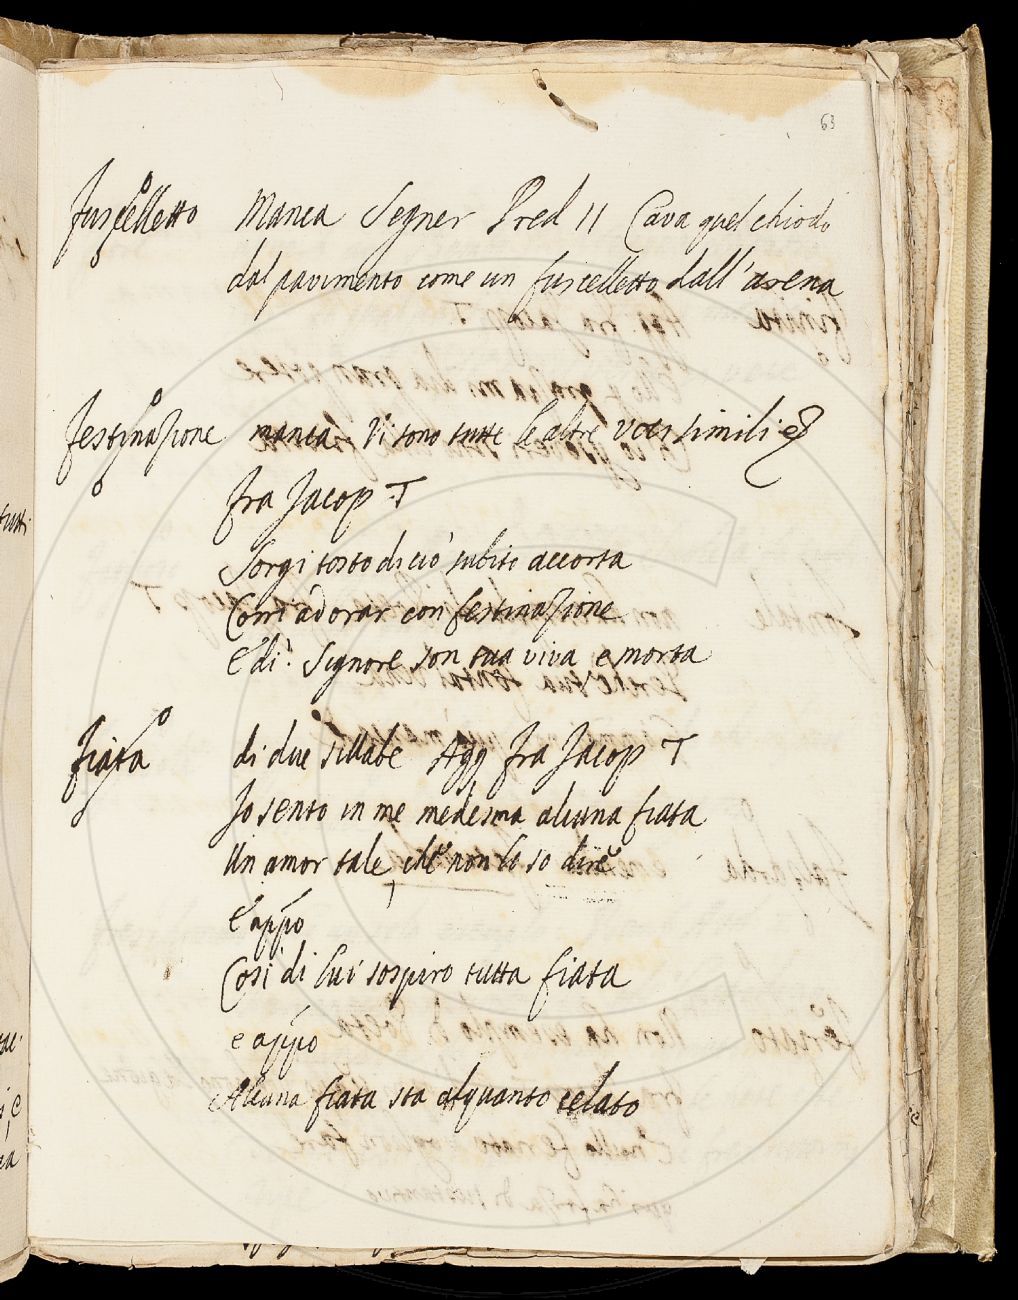 63
fuscelletto Manca Segner Pred 11 Cava quel chiodo
dal pavimento come un fuscelletto dall'arena
festinazione manca. Vi sono tutte le altre voci simili
fra Jacop T
Sorgi tosto di ciò subito accorta
Corri adorar con festinazione
E dì: Signore son tua viva e morta
fiata di due sillabe Agg fra Jacop T
Jo sento in me medesma alcuna fiata
Un amor tale, che non lo so dire
E appo
Così di lui sospiro tutta fiata
e appo
Alcuna fiata sta alquanto celato